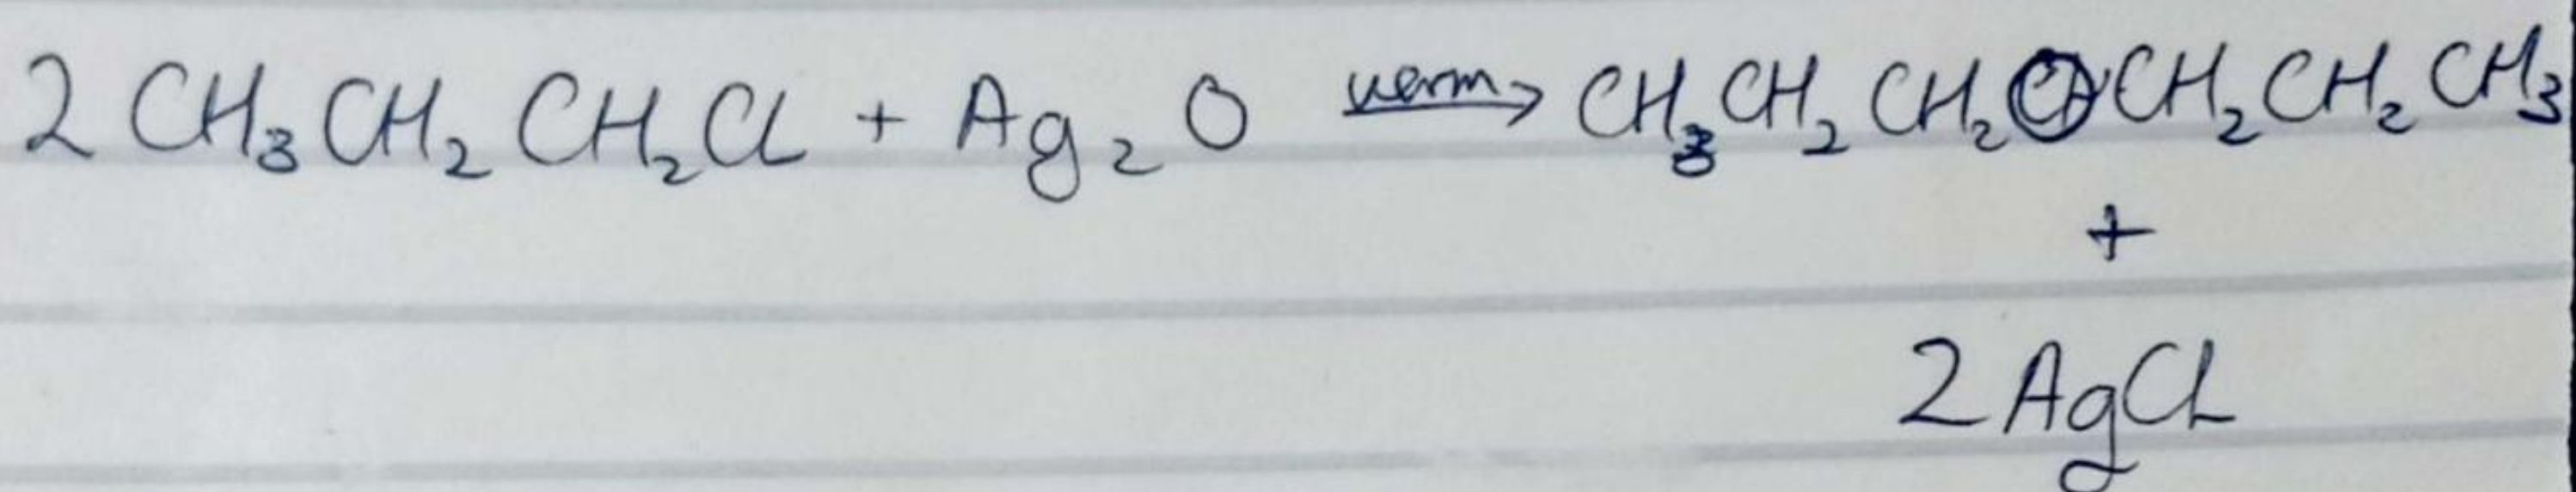 2 CH₃CH₂CH₂Cl + Ag₂O warm→ CH₃CH₂CH₂OCH₂CH₂CH₃
+
2AgCl